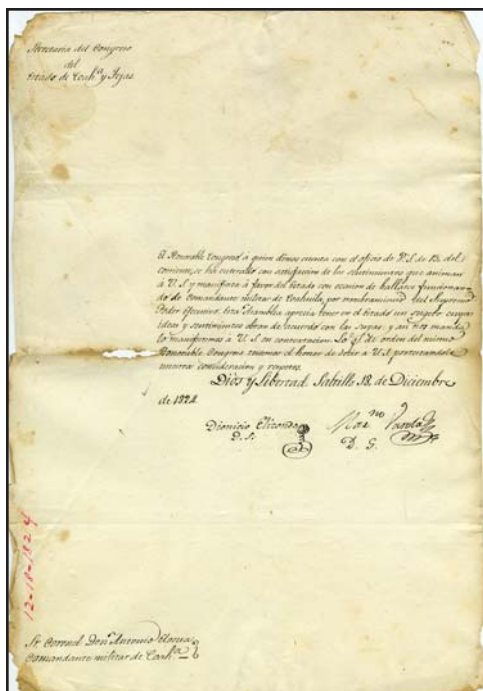 Secretaría del Congreso
del
Estado de Coah.ª y Tejas
El Honorable Congreso á quien dimos cuenta con el oficio de V.S. de 13. del
corriente, se ha enterado con satisfaccion de los sentimientos que animan
á V.S. y manifiesta á favor del Estado con ocasion de hallarse funcionan-
do de Comandante militar de Coahuila, por nombramiento del Supremo
Poder Ejecutivo. Esta Asamblea aprecia tener en el Estado un sugeto cuyas
ideas y sentimientos obran de acuerdo con las suyas, y asi nos manda
lo manifestemos á V.S. en contestacion. Lo de orden del mismo
Honorable Congreso tenemos el honor de decir á V.S. protestandole
nuestra consideracion y respetos.
Dios y Libertad. Saltillo 18. de Diciembre
de 1824.
Dionicio Elizondo
D. S.
Mar.no Varela
D. S.
12-18-1824
Sr. Coronel Don Antonio Elosua
Comandante militar de Coah.ª